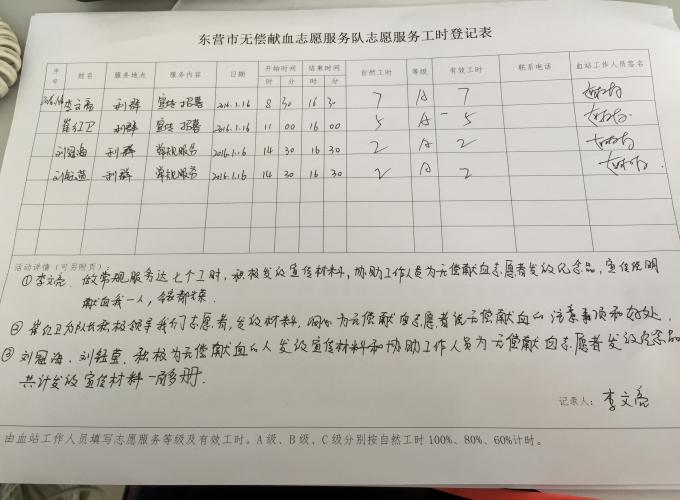 东营市无偿献血志愿服务队志愿服务工时登记表
序号 姓名 服务地点 服务内容 日期 开始时间 结束时间 自然工时 等级 有效工时 联系电话 血站工作人员签名
时 分 时 分
李文亮 利群 宣传招募 2016.1.16 8 30 16 30 7 A 7
崔红卫 利群 宣传招募 2016.1.16 11 00 16 00 5 A 5
刘冠海 利群 常规服务 2016.1.16 14 30 16 30 2 A 2
刘钰莹 利群 常规服务 2016.1.16 14 30 16 30 2 A 2
活动详情（可另附页）：
①李文亮 做常规服务达七个工时，积极发放宣传材料，协助工作人员为无偿献血志愿者发放纪念品，宣传
献血我一人，全家都光荣.
②崔红卫为队长积极领导我们志愿者，发放材料，为无偿献血志愿者说无偿献血的注意事项和好处.
③刘冠海、刘钰莹.积极为无偿献血的人发放宣传材料和协助工作人员为无偿献血志愿者发放纪念品
共计发放宣传材料一百多册.
记录人：李文亮
由血站工作人员填写志愿服务等级及有效工时。A级、B级、C级分别按自然工时100%、80%、60%计时。